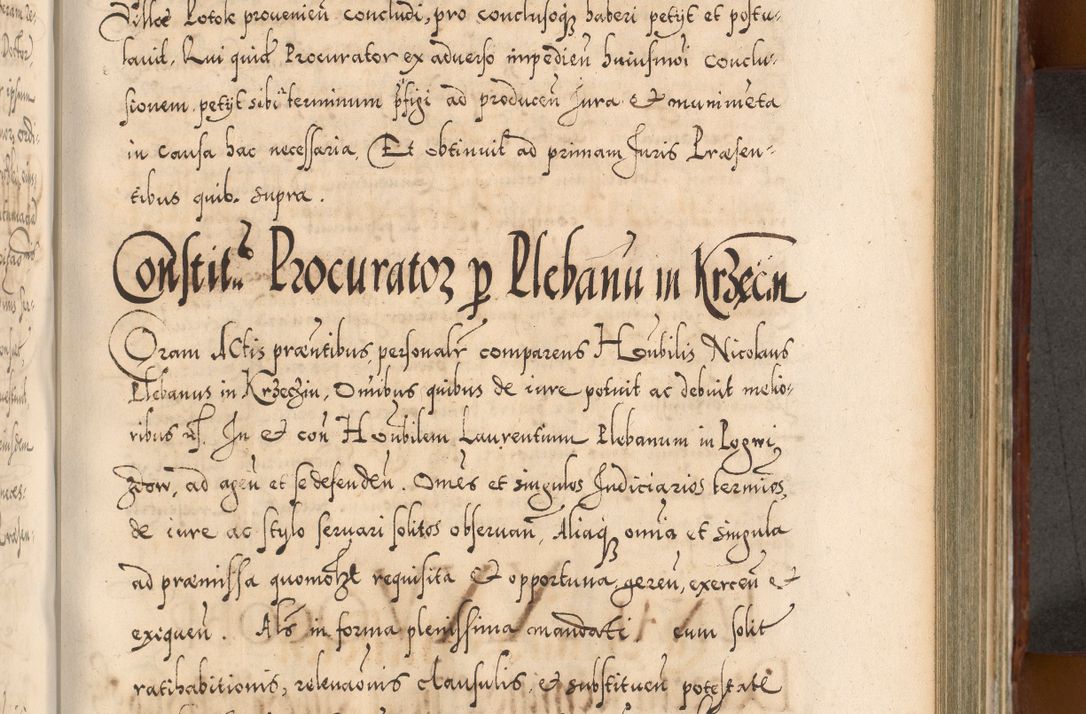 Villae Potok provenien̄ concludi, pro conclusoq̨ haberi petÿt et postu-
lavit. Qui quid Procurator ex adverso impedien̄ huiusmōi conclu-
sionem petÿt sibi terminum p̄figi ad producen̄ Jura & munimēta
in causa hac necessaria, Et obtinuit ad primam Juris Præsen-
tibus quib. supra.
Constit. Procurator p Plebanū in Krzęcin
Coram Actis præntibus personalr comparens Honbilis Nicolaus
Plebanus in Krzeczin, Omībus quibus de iure potuit ac debuit melio-
ribus In & con Honbilem Laurentium Plebanum in Pogwi
zdow, ad agen̄ et se defenden̄. Omēs et singulos Judiciarios termīos,
de iure ac stylo servari solitos observan̄, Aliaq̨ omnia et singula
ad præmissa quomōlzt requisita & opportuna, geren̄, exercen̄ &
exiquen̄. Als in forma plenissima mandati cum solit
ratihabitionis, relevaōnis clausulis, & substituen̄ potestate